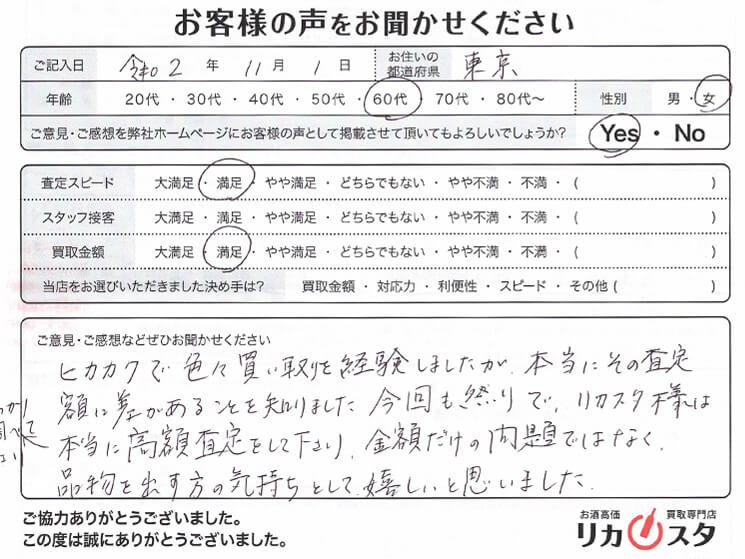 お客様の声をお聞かせください
ご記入日 令和 2 年 11 月 1 日 お住いの都道府県 東京
年齢 20代 ・ 30代 ・ 40代 ・ 50代 ・ 60代 ・ 70代 ・ 80代〜 性別 男 ・ 女
ご意見・ご感想を弊社ホームページにお客様の声として掲載させて頂いてもよろしいでしょうか? Yes ・ No
査定スピード 大満足 ・ 満足 ・ やや満足 ・ どちらでもない ・ やや不満 ・ 不満 ・ ( )
スタッフ接客 大満足 ・ 満足 ・ やや満足 ・ どちらでもない ・ やや不満 ・ 不満 ・ ( )
買取金額 大満足 ・ 満足 ・ やや満足 ・ どちらでもない ・ やや不満 ・ 不満 ・ ( )
当店をお選びいただきました決め手は? 買取金額 ・ 対応力 ・ 利便性 ・ スピード ・ その他 ( )
ご意見・ご感想などぜひお聞かせください
ヒカカクで色々買い取りを経験しましたが、本当にその査定
額に差があることを知りました 今回も然りで、リカスタ様は
本当に高額査定をして下さり、金額だけの問題ではなく、
品物を出す方の気持ちとして嬉しいと思いました。
ご協力ありがとうございました。
この度は誠にありがとうございました。
お酒高価 買取専門店
リカスタ